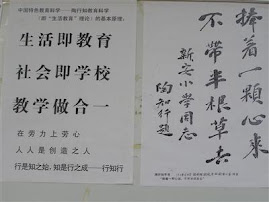 中国特色教育科学——陶行知教育科学
即“生活教育”理论的基本原理：
生活即教育
社会即学校
教学做合一
在劳力上劳心
人人是创造之人
行是知之始，知是行之成——行知行
捧着一颗心来
不带半根草去
新安小学同志
陶知行题